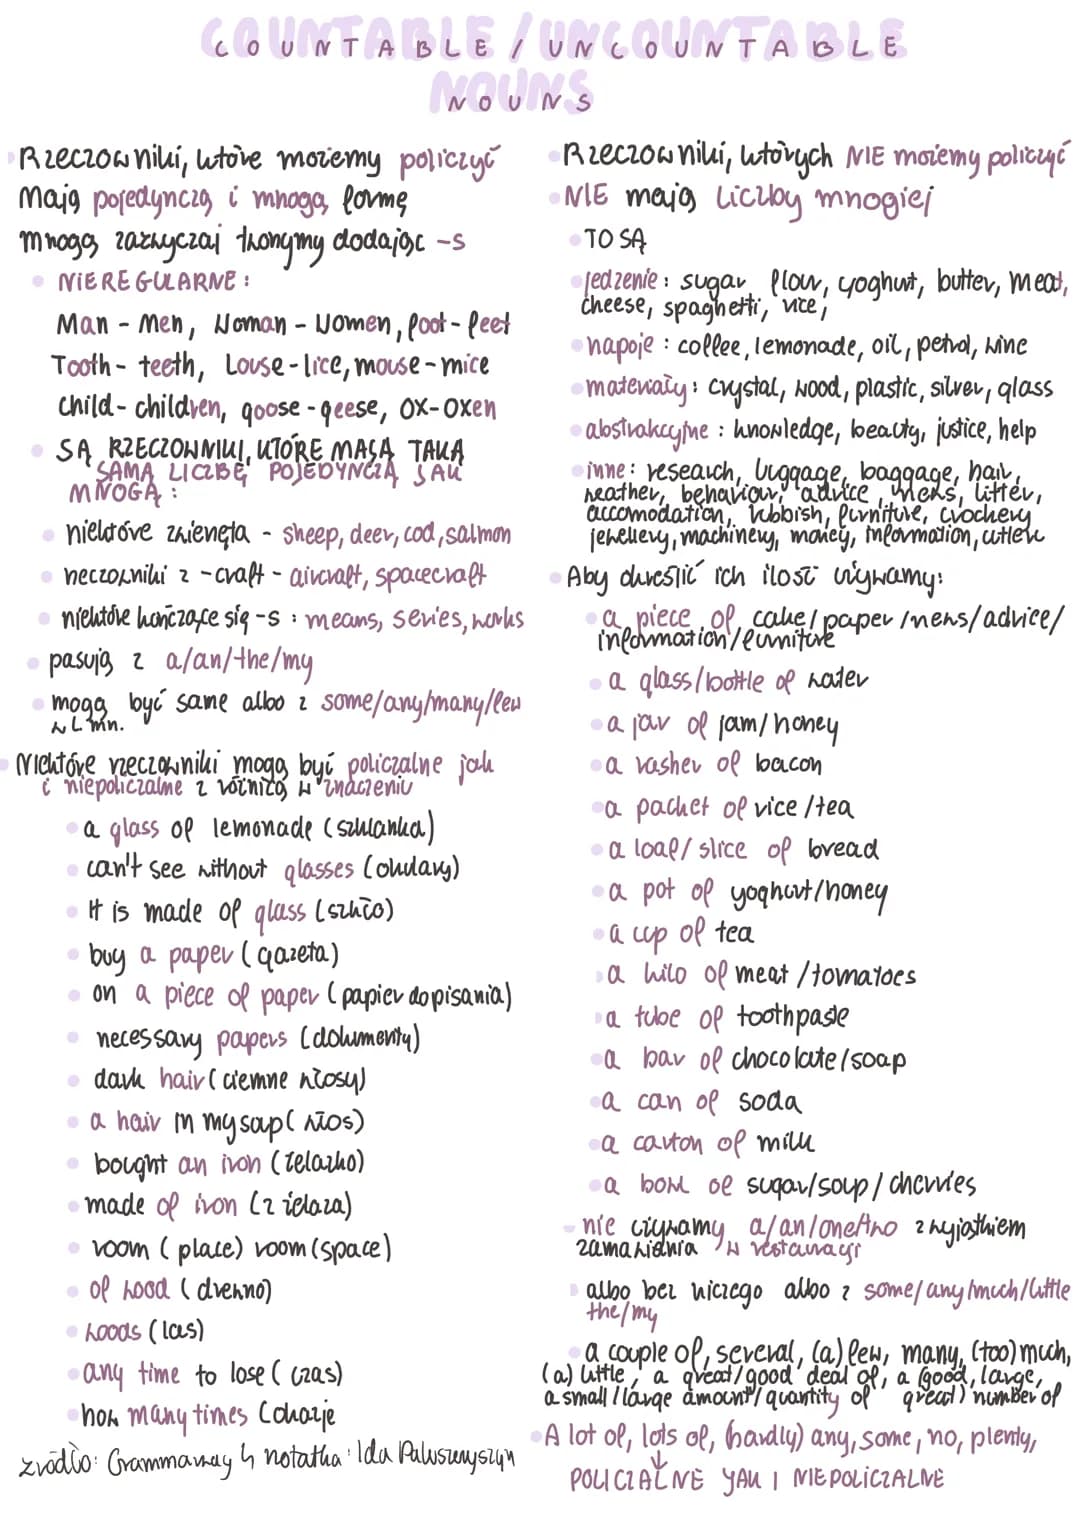 COUNTABLE / UNCOUNTABLE
NOUNS
Rzeczowniki, które możemy policzyć
Mają pojedynczą i mnogą formę
mnogą zazwyczaj tworzymy dodając -s
NIEREGULARNE:
Man - Men, Woman - Women, foot - feet
Tooth - teeth, Louse - lice, mouse - mice
Child - children, goose - geese, ox - oxen
SĄ RZECZOWNIKI, KTÓRE MAJĄ TAKĄ
SAMĄ LICZBĘ POJEDYNCZĄ JAK
MNOGĄ:
niektóre zwierzęta - sheep, deer, cod, salmon
rzeczowniki z -craft - aircraft, spacecraft
niektóre kończące się -s: means, series, works
pasują z a/an/the/my
mogą być same albo z some/any/many/few
w L. mn.
Niektóre rzeczowniki mogą być policzalne jak
i niepoliczalne z różnicą w znaczeniu
a glass of lemonade (szklanka)
can't see without glasses (okulary)
It is made of glass (szkło)
buy a paper (gazeta)
on a piece of paper (papier do pisania)
necessary papers (dokumenty)
dark hair (ciemne włosy)
a hair in my soup (włos)
bought an iron (żelazko)
made of iron (z żelaza)
room (place) room (space)
of wood (drewno)
woods (las)
any time to lose (czas)
how many times (okazje
źródło: Grammarway 4 notatka: Ida
Rzeczowniki, których NIE możemy policzyć
NIE mają liczby mnogiej
TO SĄ
jedzenie: sugar, flour, yoghurt, butter, meat,
cheese, spaghetti, rice,
napoje: coffee, lemonade, oil, petrol, wine
materiały: crystal, wood, plastic, silver, glass
abstrakcyjne: knowledge, beauty, justice, help
inne: research, luggage, baggage, hair,
weather, behaviour, advice, news, litter,
accomodation, rubbish, furniture, crockery
jewellery, machinery, money, information, cutlery
Aby określić ich ilość używamy:
a piece of cake/paper/news/advice/
information/furniture
a glass/bottle of water
a jar of jam/honey
a rasher of bacon
a packet of rice/tea
a loaf/slice of bread
a pot of yoghurt/honey
a cup of tea
a kilo of meat/tomatoes
a tube of toothpaste
a bar of chocolate/soap
a can of soda
a carton of milk
a bowl of sugar/soup/cherries
nie używamy a/an/one/two z wyjątkiem
zamawiania w restauracji
albo bez niczego albo z some/any/much/little
the/my
a couple of, several, (a) few, many, (too) much,
(a) little, a great/good deal of, a (good, large,
a small/large amount/quantity of great) number of
A lot of, lots of, (hardly) any, some, no, plenty,
↓
POLICZALNE JAK I NIEPOLICZALNE